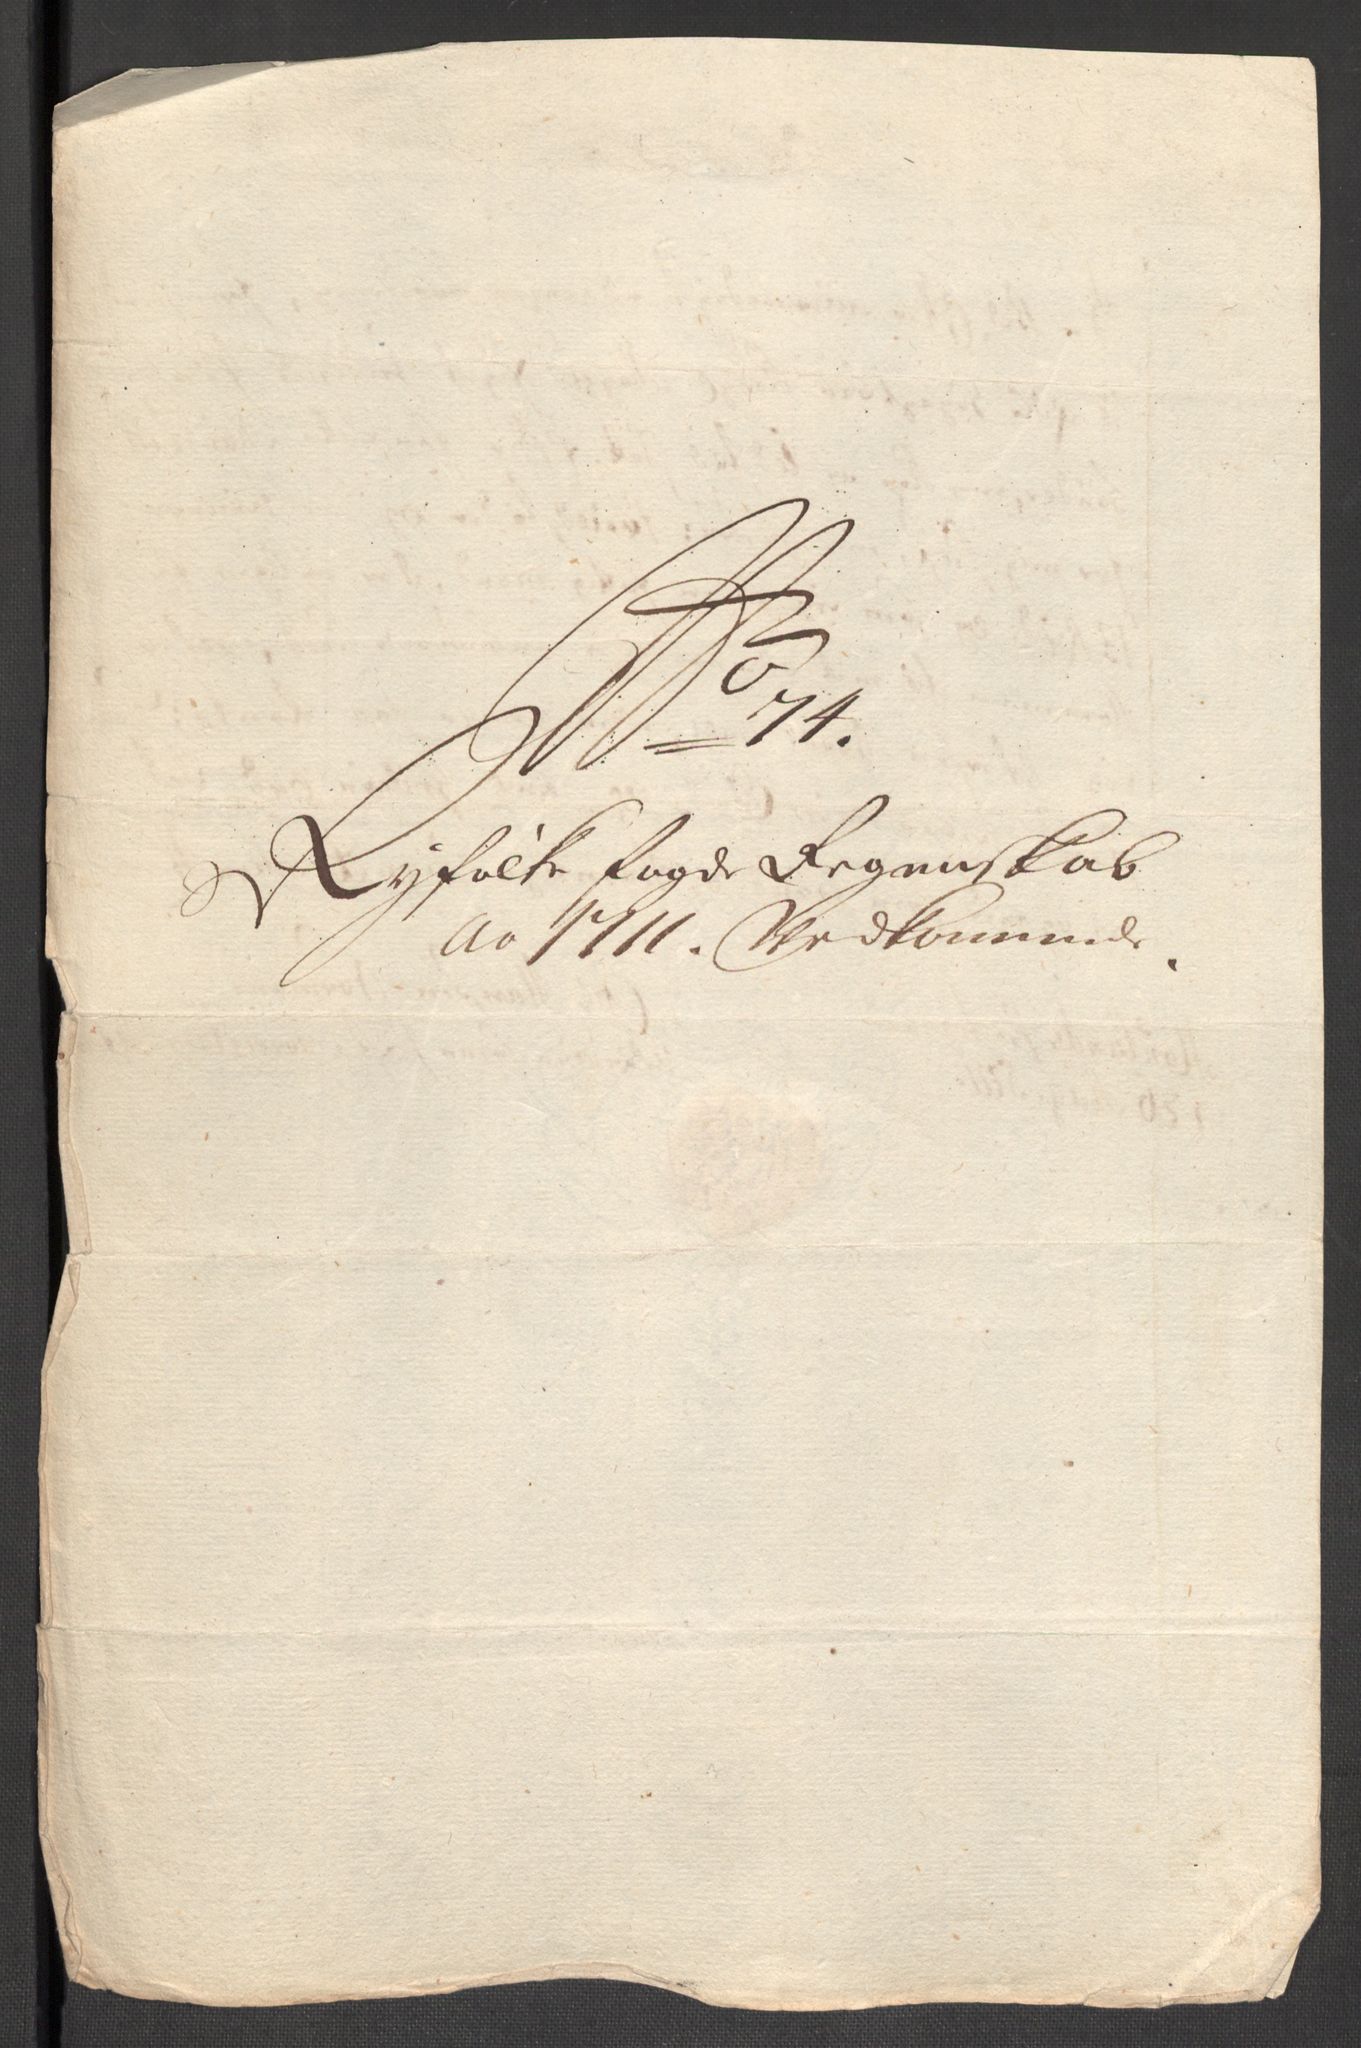 No 74.
Ryfolke fogde Regenskab
Ao 1711. Vedkommende.